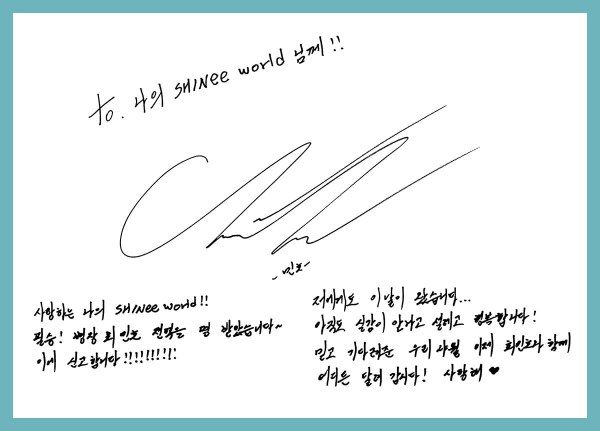 to. 나의 SHINee world 님께!!
-민호-
사랑하는 나의 SHINee world!!
필승! 병장 최민호 전역을 명 받았습니다~
이에 신고합니다!!!!!!!!!!
저에게도 이날이 왔습니다...
아직도 실감이 안나고 설레고 행복합니다!
믿고 기다려준 우리 샤월 이제 최민호와 함께
어디든 달려 갑시다! 사랑해 ♥